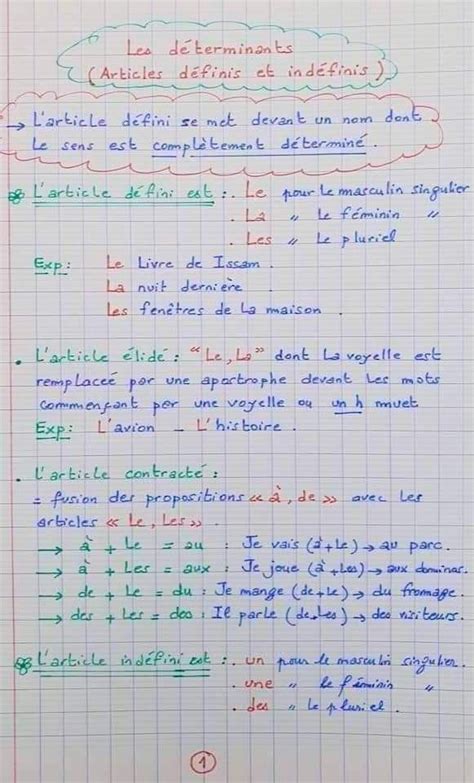 Les déterminants
(Articles définis et indéfinis)
→ L'article défini se met devant un nom dont
le sens est complètement déterminé.
L'article défini est : . Le pour le masculin singulier
. La " le féminin "
. Les " le pluriel
Exp : Le livre de Issam.
La nuit dernière
Les fenêtres de la maison.
. L'article élidé : "Le, La" dont la voyelle est
remplaceé par une apostrophe devant les mots
commençant par une voyelle ou un h muet
Exp : L'avion - L'histoire.
. L'article contracté :
= fusion des propositions « à, de » avec les
articles « Le, Les ».
→ à + Le = au : Je vais (à+le) → au parc.
→ à + Les = aux : Je joue (à+les) → aux dominos.
→ de + Le = du : Je mange (de+le) → du fromage.
→ des + Les = des : Il parle (de+les) → des visiteurs.
L'article indéfini est : . un pour le masculin singulier.
. une " le féminin "
. des " le pluriel.
1